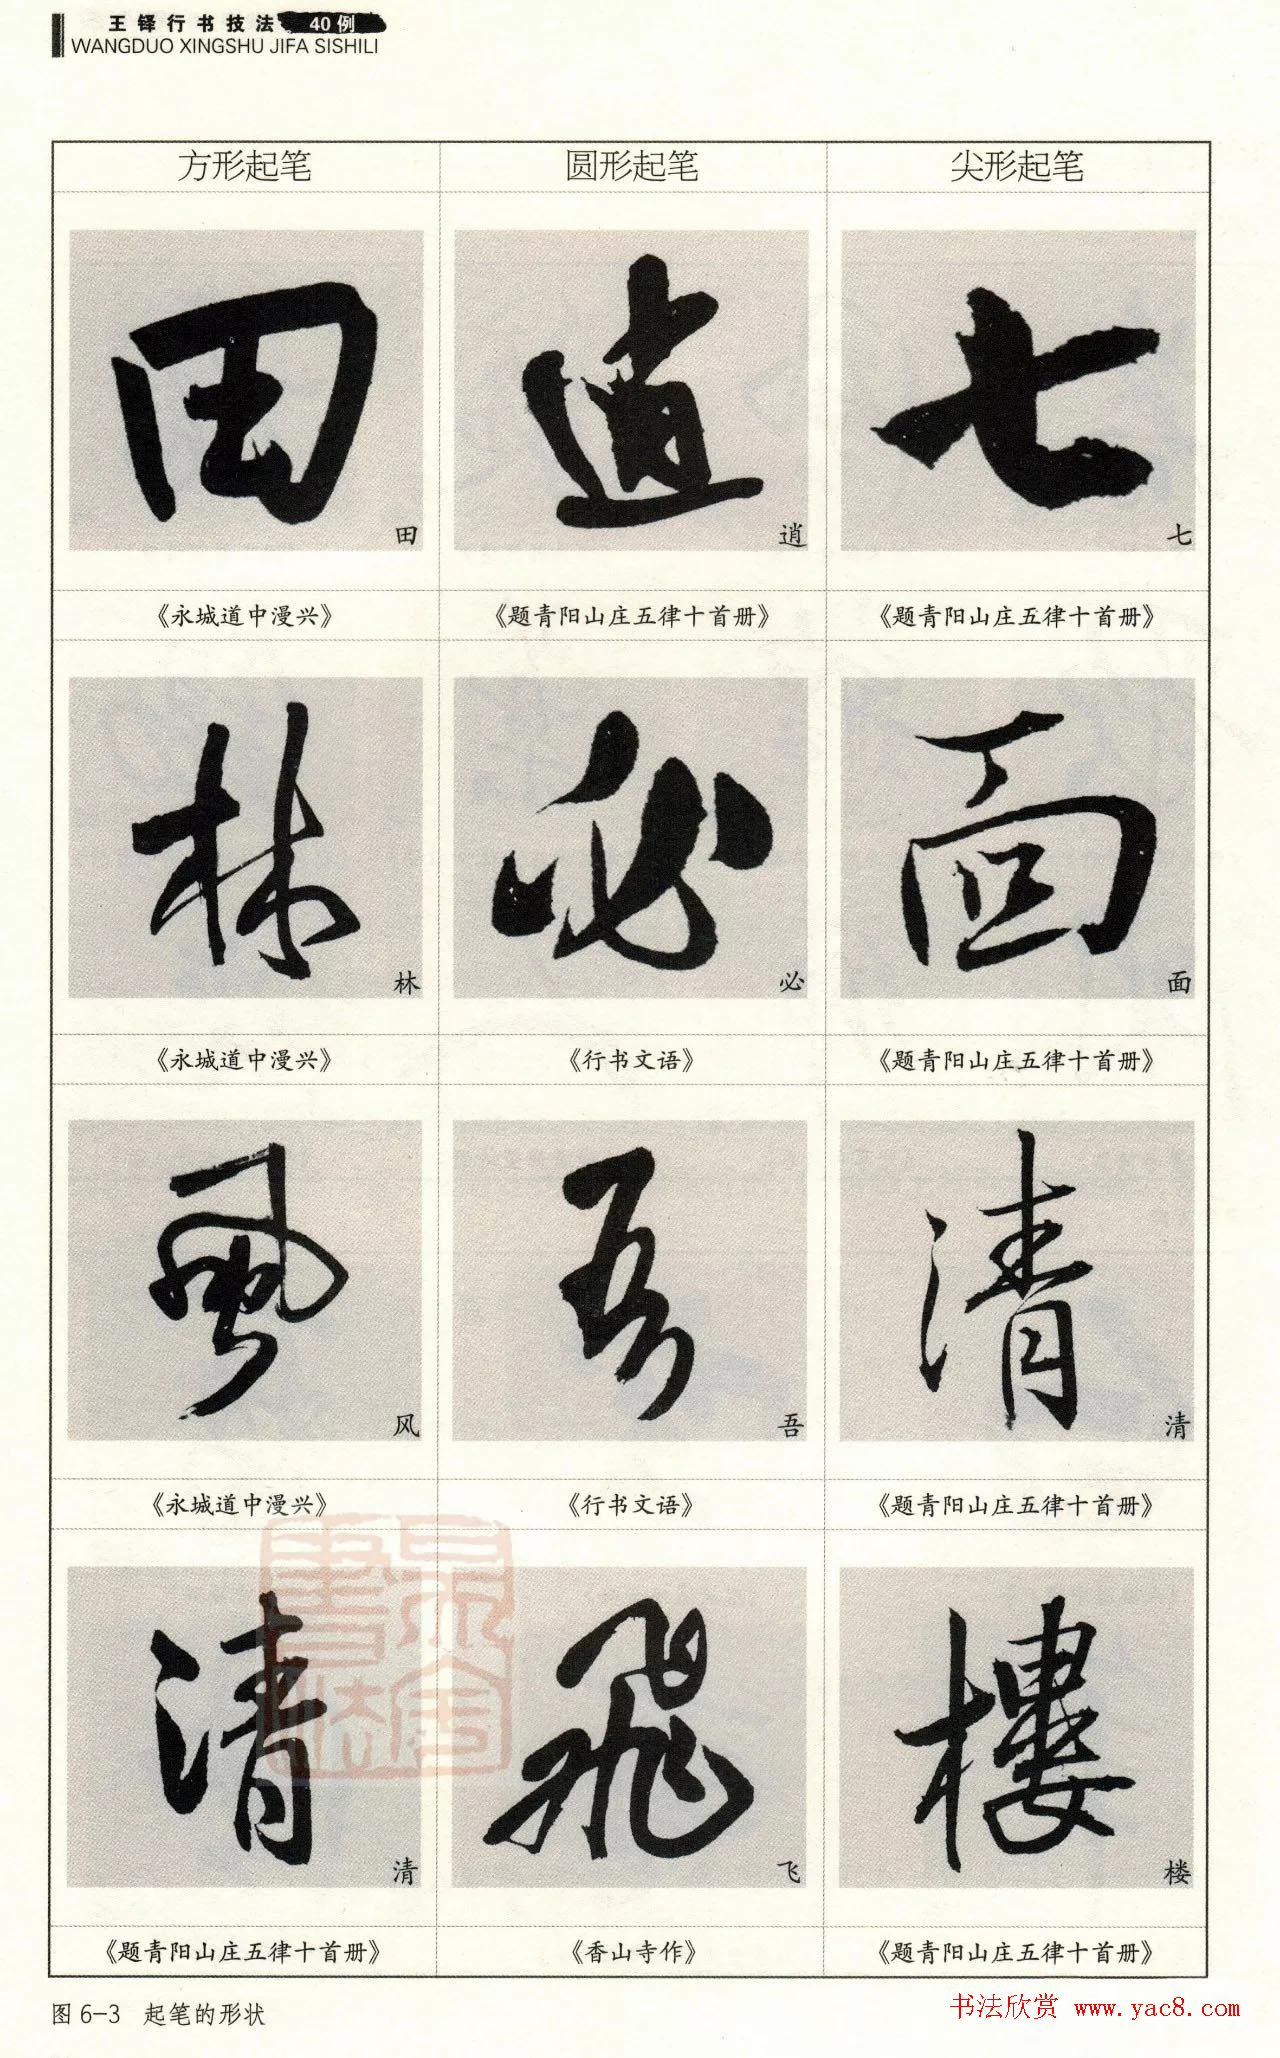 王铎行书技法 40例
WANGDUO XINGSHU JIFA SISHILI
方形起笔 圆形起笔 尖形起笔
田 逍 七
《永城道中漫兴》 《题青阳山庄五律十首册》 《题青阳山庄五律十首册》
林 必 面
《永城道中漫兴》 《行书文语》 《题青阳山庄五律十首册》
风 吾 清
《永城道中漫兴》 《行书文语》 《题青阳山庄五律十首册》
清 飞 楼
《题青阳山庄五律十首册》 《香山寺作》 《题青阳山庄五律十首册》
图 6-3 起笔的形状
书法欣赏 www.yac8.com